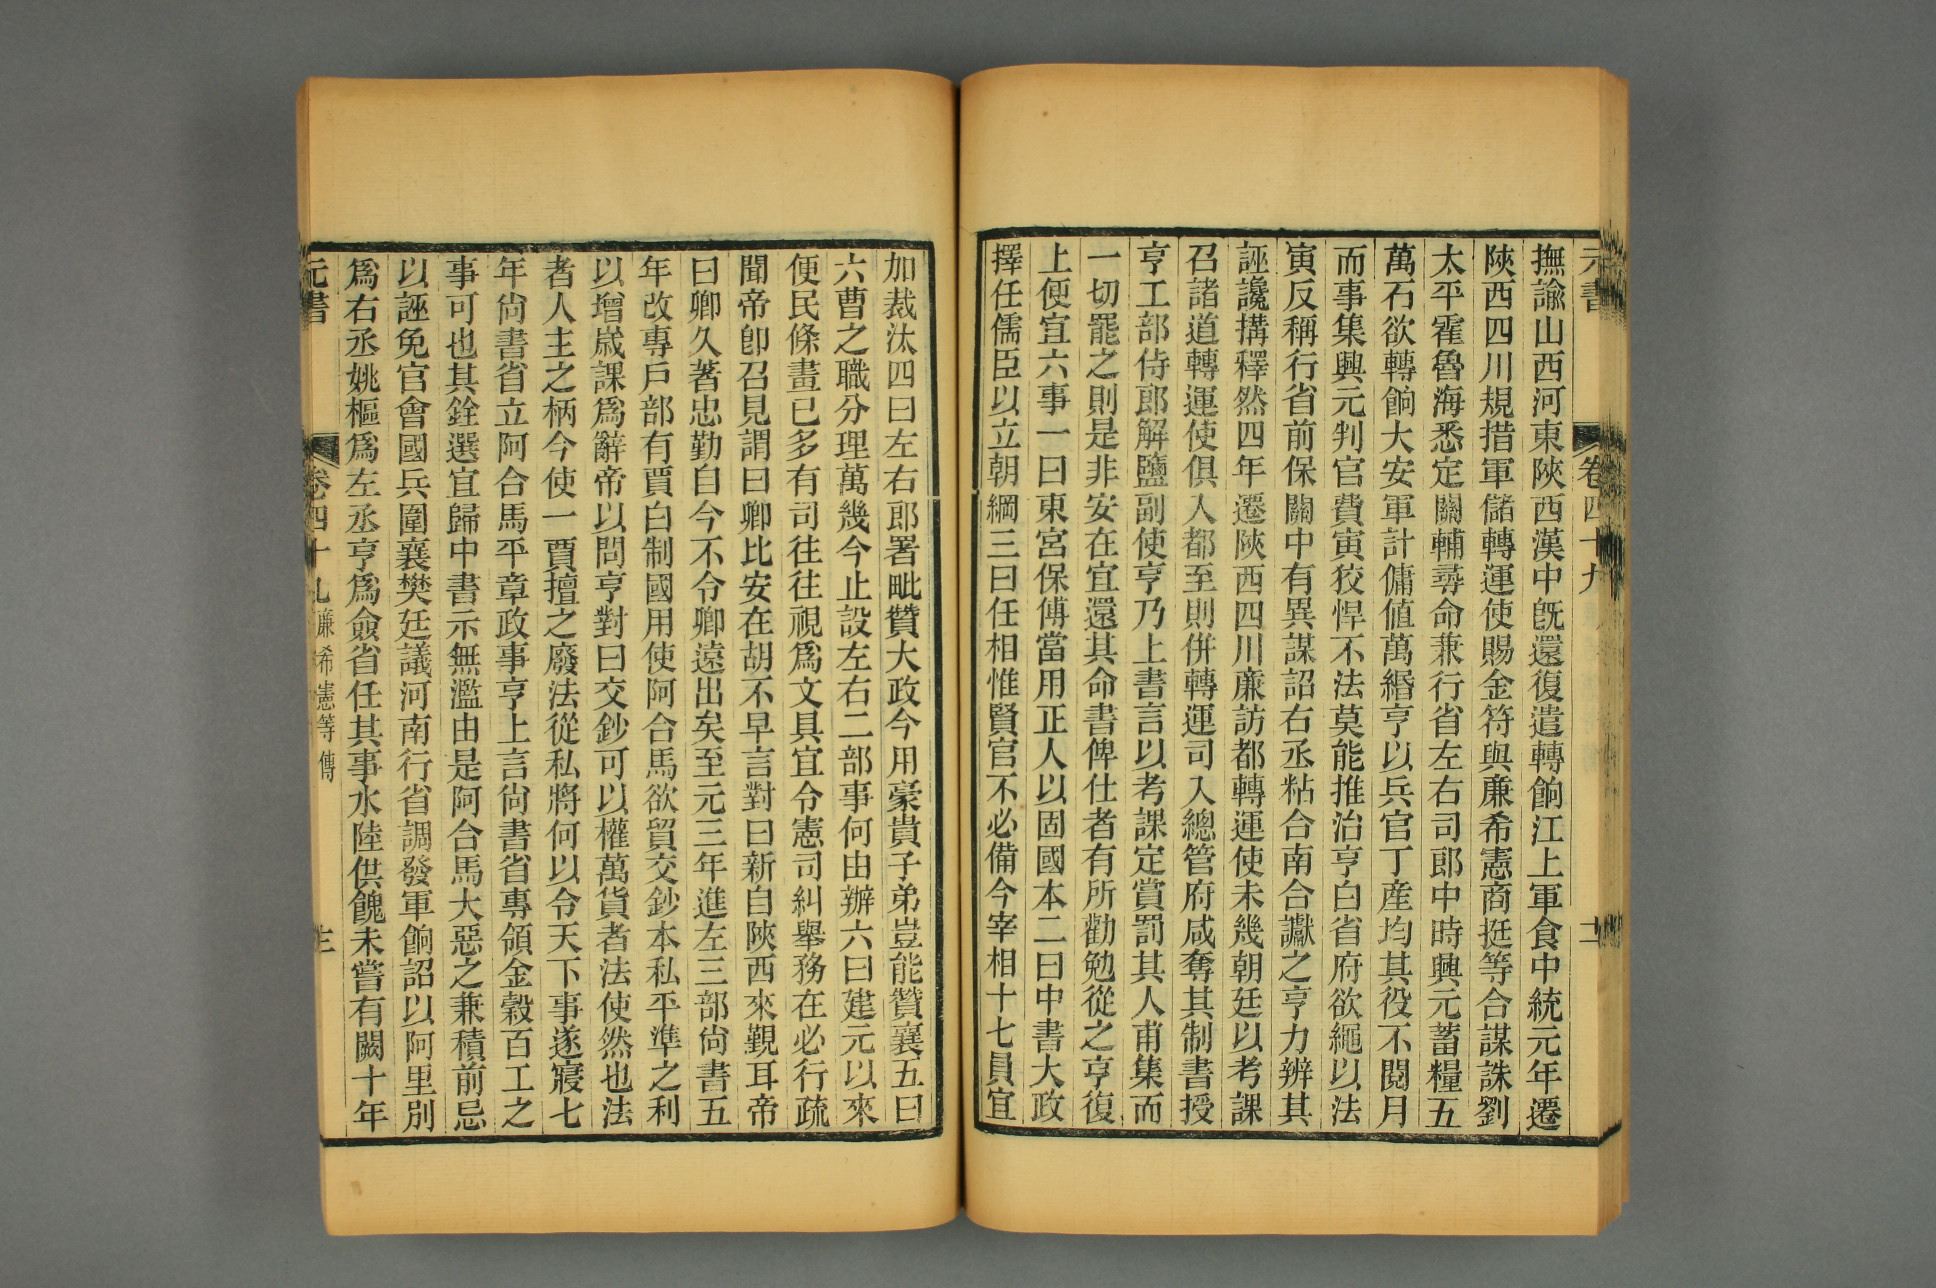 元書 卷四十九
撫諭山西河東陝西漢中旣還復遣轉餉江上軍食中統元年遷
陝西四川規措軍儲轉運使賜金符與廉希憲商挺等合謀誅劉
太平霍魯海悉定關輔尋命兼行省左右司郎中時興元蓄糧五
萬石欲轉餉大安軍計傭値萬緡亨以兵官丁産均其役不閱月
而事集興元判官費寅狡悍不法莫能推治亨白省府欲繩以法
寅反稱行省前保關中有異謀詔右丞粘合南合讞之亨力辨其
誣讒搆釋然四年遷陝西四川廉訪都轉運使未幾朝廷以考課
召諸道轉運使俱入都至則併轉運司入總管府咸奪其制書授
亨工部侍郎解鹽副使亨乃上書言以考課定賞罰其人甫集而
一切罷之則是非安在宜還其命書俾仕者有所勸勉從之亨復
上便宜六事一曰東宮保傅當用正人以固國本二曰中書大政
擇任儒臣以立朝綱三曰任相惟賢官不必備今宰相十七員宜
加裁汰四曰左右郎署毗贊大政今用豪貴子弟豈能贊襄五曰
六曹之職分理萬幾今止設左右二部事何由辦六曰建元以來
便民條畫已多有司往往視爲文具宜令憲司糾舉務在必行疏
聞帝卽召見謂曰卿比安在胡不早言對曰新自陝西來覲耳帝
曰卿久著忠勤自今不令卿遠出矣至元三年進左三部尙書五
年改專戶部有賈白制國用使阿合馬欲貿交鈔本私平準之利
以增歲課爲辭帝以問亨對曰交鈔可以權萬貨者法使然也法
者人主之柄今使一賈擅之廢法從私將何以令天下事遂寢七
年尙書省立阿合馬平章政事亨上言尙書省專領金穀百工之
事可也其銓選宜歸中書示無濫由是阿合馬大惡之兼積前忌
以誣免官會國兵圍襄樊廷議河南行省調發軍餉詔以阿里別
爲右丞姚樞爲左丞亨爲僉省任其事水陸供餽未嘗有闕十年
元書 卷四十九 廉希憲等傳